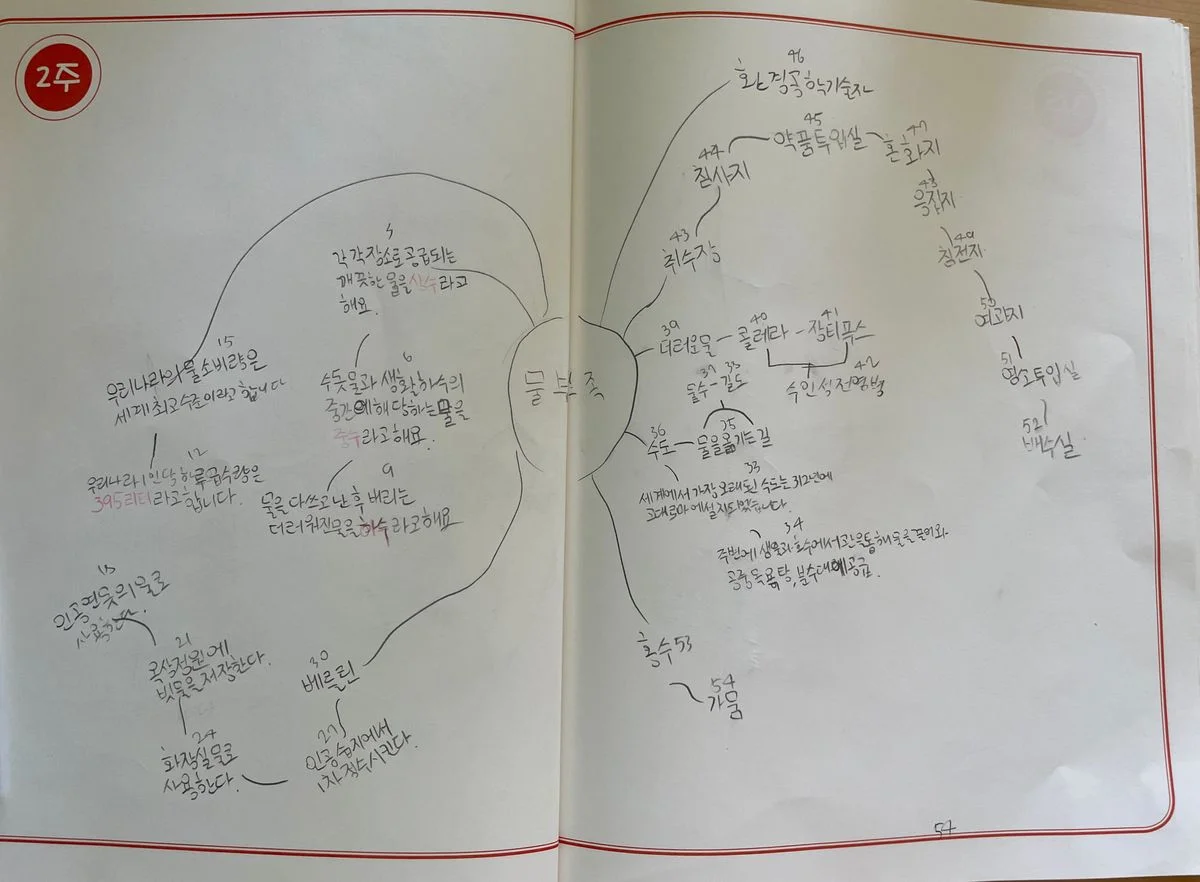 2주
물부족
5
각각 장소로 공급되는
깨끗한 물을 상수라고
해요.
6
수돗물과 생활하수의
중간에 해당하는 물을
중수라고 해요.
9
물을 다 쓰고 난 후 버리는
더러워진 물을 하수라고 해요
15
우리나라의 물 소비량은
세계 최고 수준이라고 합니다
12
우리나라 1인당 하루 급수량은
395리터라고 합니다.
30
베를린
27
인공습지에서
1차 정수시킨다.
24
화장실 물로
사용한다.
21
옥상정원에
빗물을 저장한다.
18
인공연못의 물로
사용한다.
46
환경공학기술자
43
취수장
44
침사지
45
약품투입실
47
혼화지
48
응집지
49
침전지
50
여과지
51
염소투입실
52
배수실
39
더러운물
40
콜레라
41
장티푸스
42
수인성전염병
36
수도
35
물을 옮기는 길
37
물수
38
길도
33
세계에서 가장 오래된 수도는 312년에
고대로마에 설치되었습니다.
34
주변에 샘물과 호수에서 관을 통해 물을 끌어와
공중목욕탕, 분수대에 공급.
홍수 53
54
가뭄
54